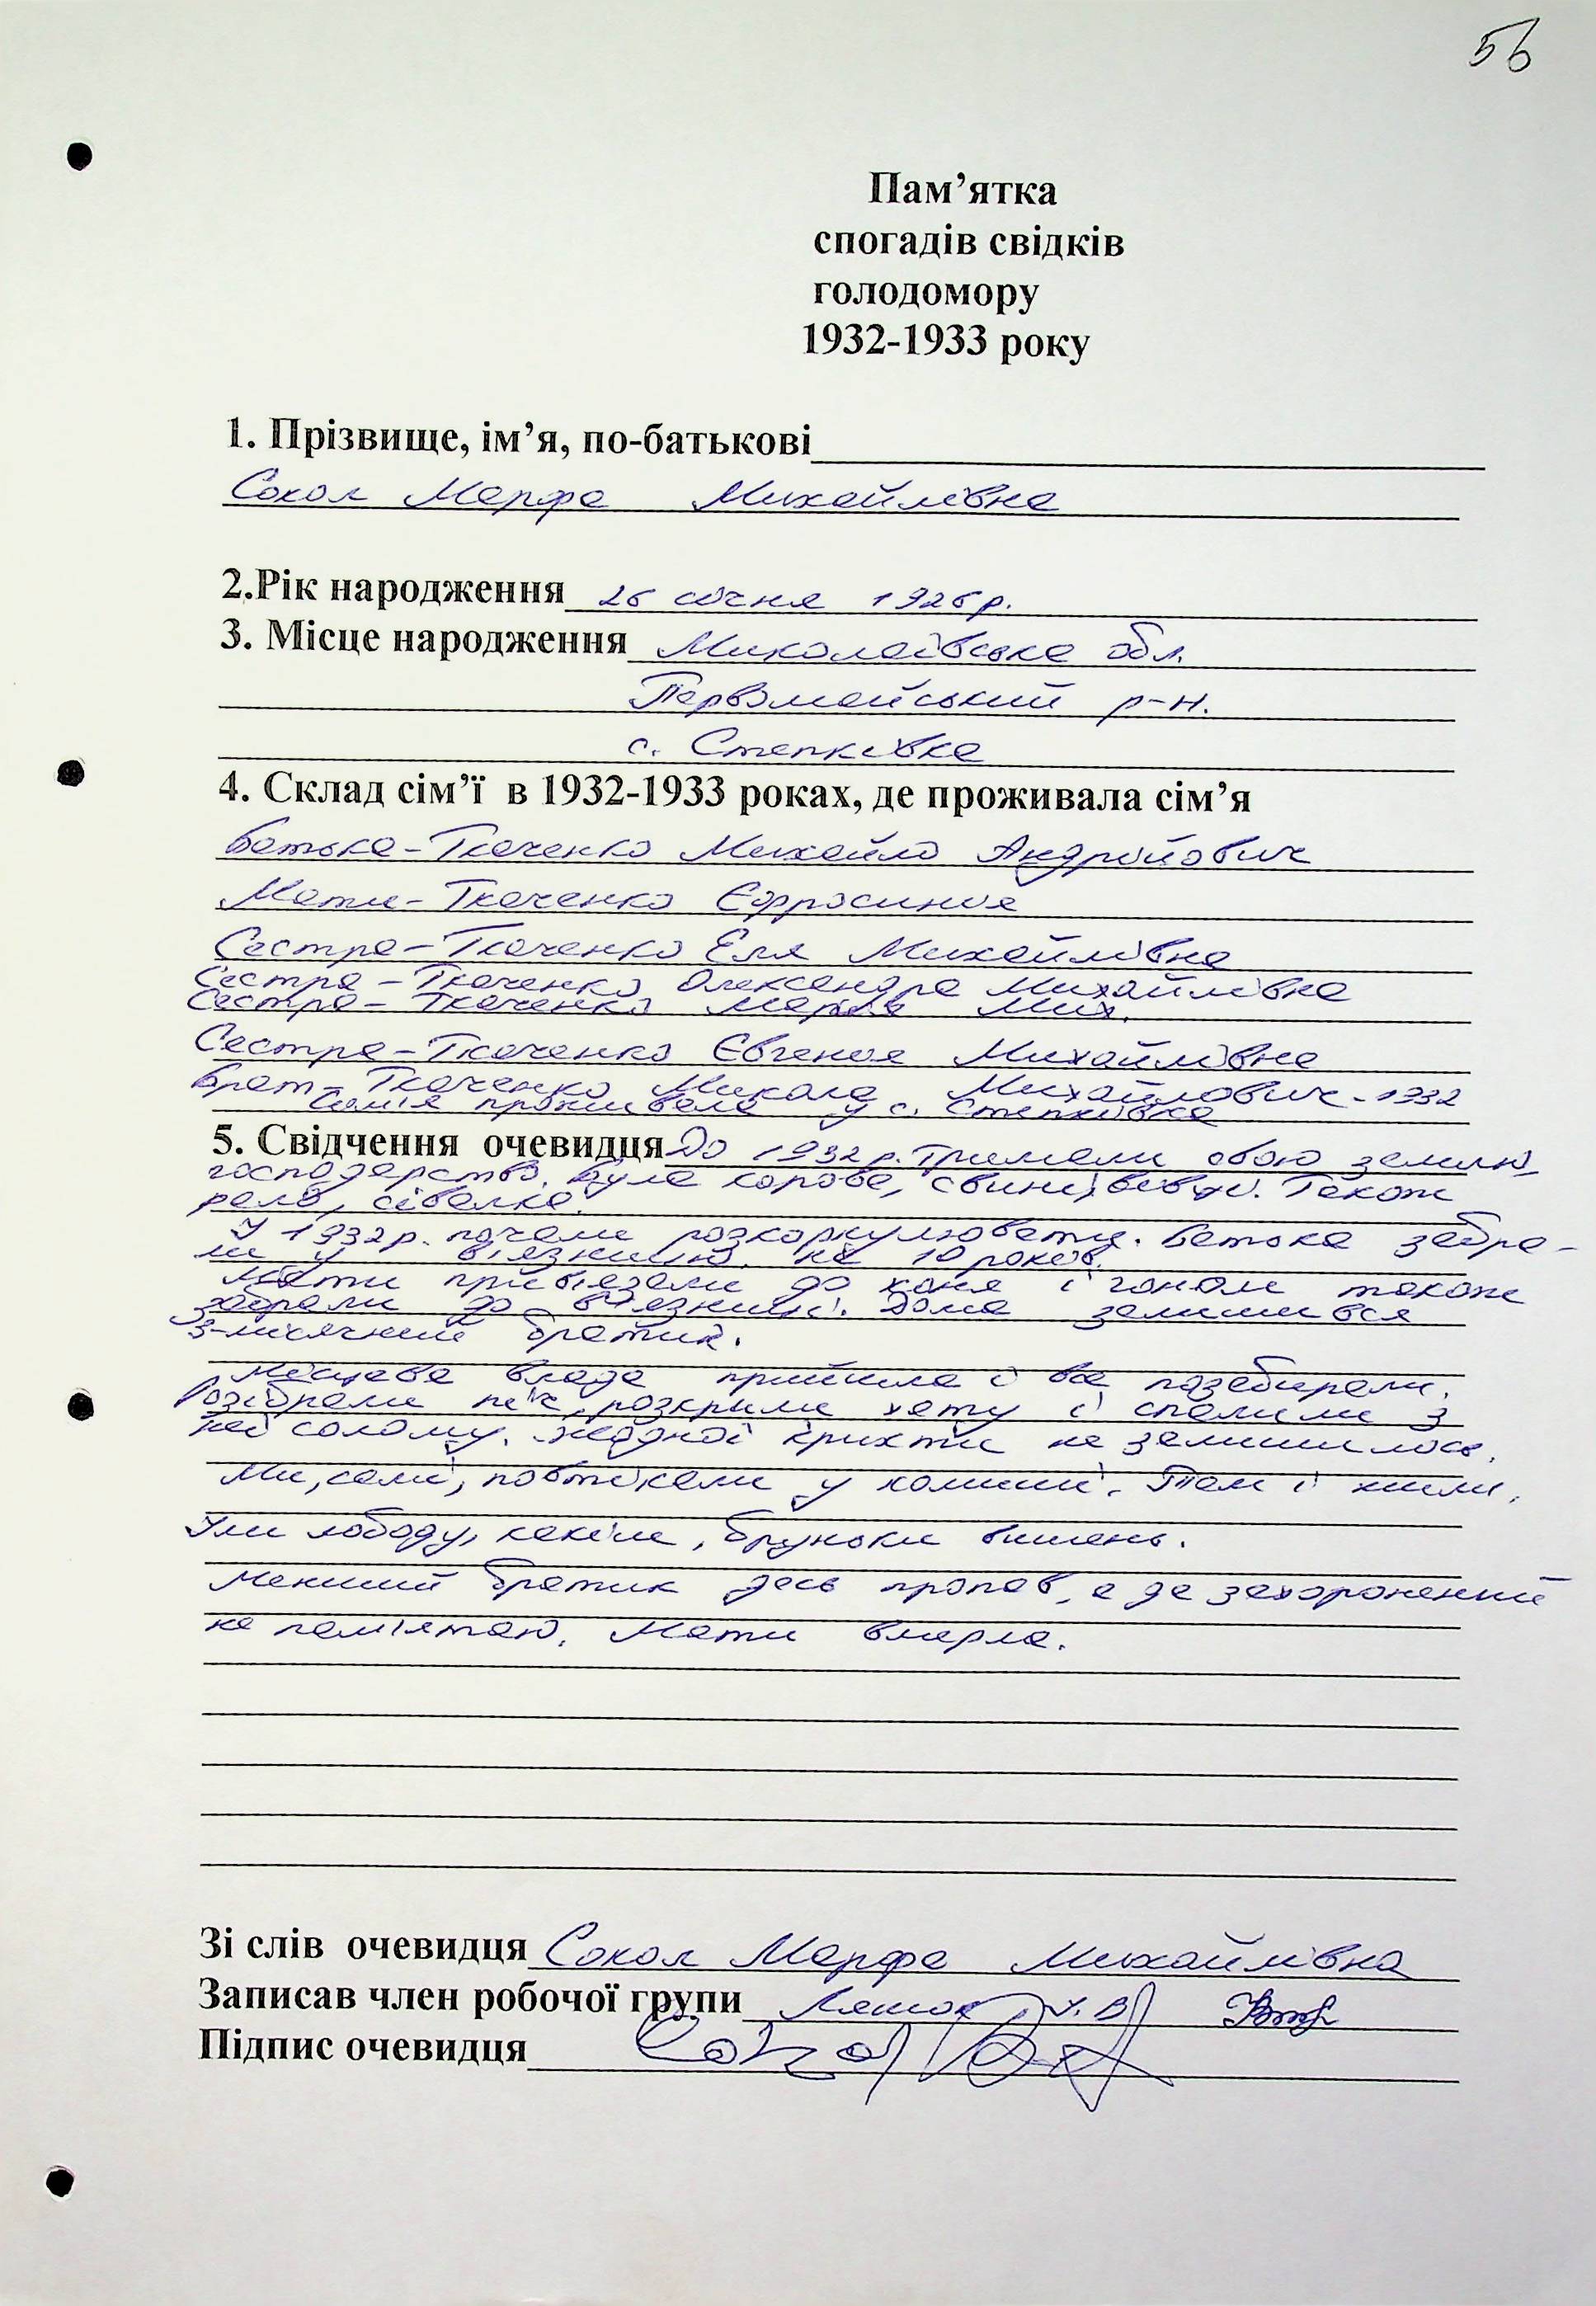 56
Пам’ятка
спогадів свідків
голодомору
1932-1933 року
1. Прізвище, ім’я, по-батькові
Сокол Марфа Михайлівна
2.Рік народження 26 січня 1926 р.
3. Місце народження Миколаївська обл.
Первомайський р-н.
с. Степківка
4. Склад сім’ї в 1932-1933 роках, де проживала сім’я
Батько - Ткаченко Михайло Андрійович
Мати - Ткаченко Єфросинія
Сестра - Ткаченко Еля Михайлівна
Сестра - Ткаченко Олександра Михайлівна
Сестра - Ткаченко Марія Мих.
Сестра - Ткаченко Євгенія Михайлівна
Брат - Ткаченко Микола Михайлович - 1932
Сім'я проживала у с. Степківка
5. Свідчення очевидця До 1932 р. Тримали свою землю,
господарство. Була корова, свині, вівці. Також
рало, сівалка.
У 1932 р. почали розкоркулювати. Батька забра-
ли у в'язницю на 10 років.
Мати прив'язали до коня і гнали також
забрали до в'язниці. Дома залишився
3-місячний братик.
Місцева влада прийшла і все позабирали.
Розібрали піч, розкрили хату і спалили з
неї солому. Жодної крихти не залишилось.
Ми, самі, повтікали у комиші. Там і жили.
Їли лободу, качки, бруньки вишень.
Менший братик десь пропав, а де захоронений
не пам'ятаю. Мати вмерла.
Зі слів очевидця Сокол Марфа Михайлівна
Записав член робочої групи В
Підпис очевидця Сокол